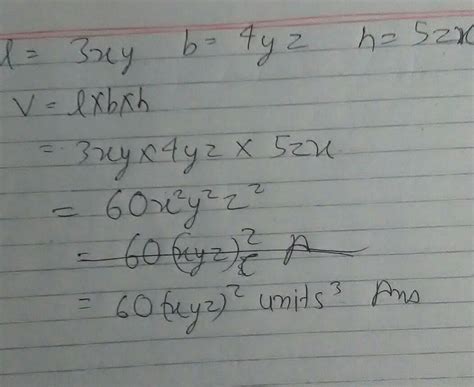 l = 3xy b = 4yz h = 5zx
V = l×b×h
= 3xy × 4yz × 5zx
= 60x²y²z²
= 60(xyz)²
= 60(xyz)² units³ Ans